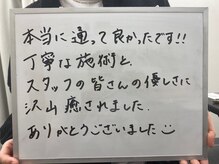 本当に通って良かったです!!
丁寧な施術と、
スタッフの皆さんの優しさに
沢山癒されました.
ありがとうございました